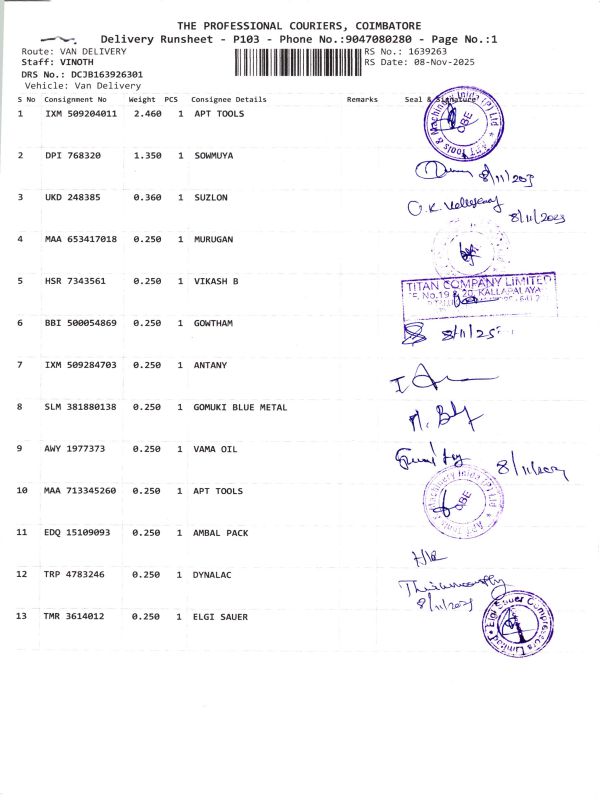 THE PROFESSIONAL COURIERS, COIMBATORE
Delivery Runsheet - P103 - Phone No.:9047080280 - Page No.:1
Route: VAN DELIVERY RS No.: 1639263
Staff: VINOTH RS Date: 08-Nov-2025
DRS No.: DCJB163926301
Vehicle: Van Delivery
S No Consignment No Weight PCS Consignee Details Remarks Seal & Signature
1 IXM 509204011 2.460 1 APT TOOLS
2 DPI 768320 1.350 1 SOWMUYA
8/11/205
3 UKD 248385 0.360 1 SUZLON
8/11/2025
4 MAA 653417018 0.250 1 MURUGAN
5 HSR 7343561 0.250 1 VIKASH B
TITAN COMPANY LIMITED
No.19 & 20, KALLAPALAYA
6 BBI 500054869 0.250 1 GOWTHAM
8/11/25
7 IXM 509284703 0.250 1 ANTANY
8 SLM 381880138 0.250 1 GOMUKI BLUE METAL
9 AWY 1977373 0.250 1 VAMA OIL
8/11/2025
10 MAA 713345260 0.250 1 APT TOOLS
11 EDQ 15109093 0.250 1 AMBAL PACK
12 TRP 4783246 0.250 1 DYNALAC
8/11/2025
13 TMR 3614012 0.250 1 ELGI SAUER
Elgi Sauer Compressors Limited